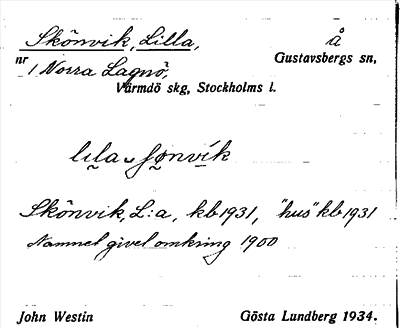 Skönvik, Lilla, å
Gustavsbergs sn,
nr 1 Norra Lagnö,
Värmdö skg, Stockholms l.
lila
Skönvik, L:a, kb 1931, "hus" kb 1931
Namnet givet omkring 1900
John Westin Gösta Lundberg 1934.